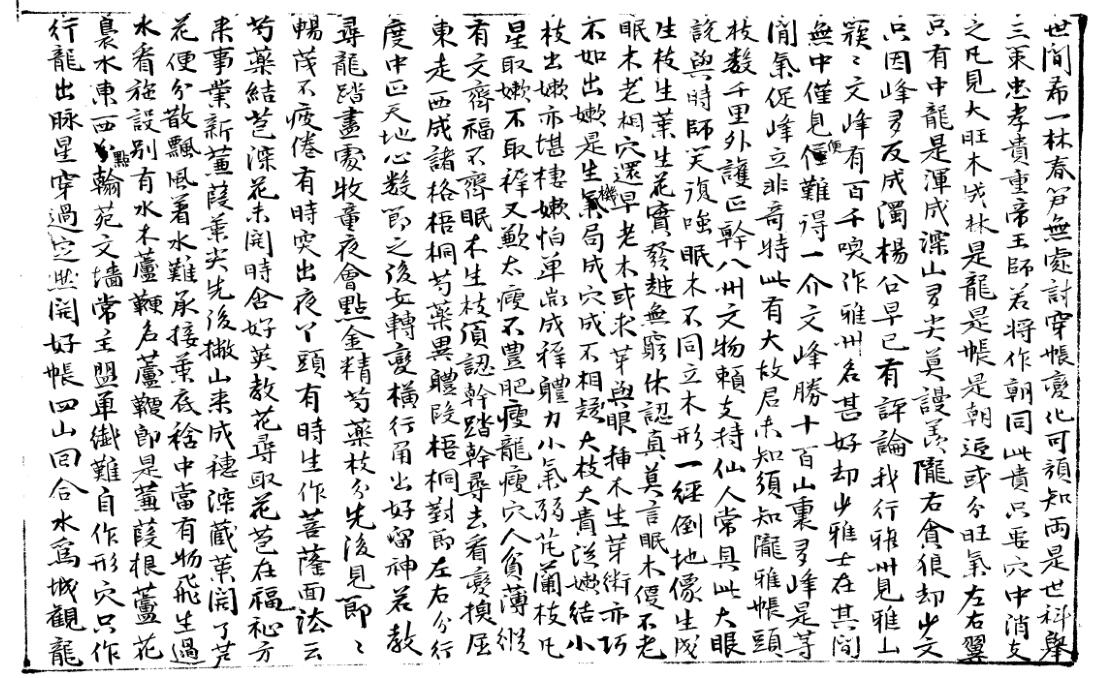 世間希一林春笋無處討穿帳變化可預知両是世科舉
三東忠孝貴重帝王師若將作朝同此貴只要穴中消支
之凡見大旺木成林是龍是帳是朝迎或分旺氣左右翼
只有中龍是渾成深山多尖莫謾羨隴右貪狼却少文
只因峰多反成濁楊公早已有評論我行雅州見雅山
簇〻文峰有百千喚作雅州名甚好却少雅士在其間
無中僅見便難得一介文峰勝十百山裏多峰是等
閒氣促峰立非奇特此有大故君未知須知隴雅帳頭
枝数千里外護正幹八州文物賴支持仙人常具此大眼
說與時師笑復嗤眠木不同立木形一經倒地像生成
生枝生葉生花實發越無窮休認真莫言眠木優不老
眠木老桐穴還早老木或求芽與眼揷木生芽術亦巧
不如出嫩是生機局成穴成不相疑大枝大貴從嫩結小
枝出嫩亦堪棲嫩怕单嵗成稺體力小氣弱芘蘭枝凡
星取嫩不取稺又歉太瘦不豐肥瘦龍瘦穴人貧薄縱
有文齊福不齊眠木生枝須認幹踏幹尋去看變換屈
東走西成諸格梧桐芍藥異軆段梧桐對節左右分行
度中正天地心数節之後女轉變橫行甬出好留神若教
尋龍踏盡處牧童夜會點金精芍藥枝分先後見節〻
暢茂不疲倦有時突出夜丫頭有時生作菩薩面法云
芍藥結苞深花未開時含好英教花尋取花苞在福祉方
来事業新蘆葭葉尖先後撇山来成穗深藏葉開了芦
花便分散飄風着水難承接葉底稔中當有物飛生過
水看施設别有水木蘆鞭名蘆鞭即是蘆葭根蘆花
裊水東西點翰苑文墻常主盟单鋤難自作形穴只作
行龍出脉星穿過定然開好帳四山回合水爲城觀龍